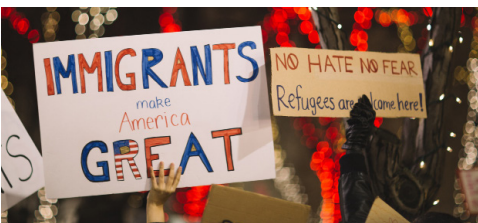 IMMIGRANTS
make
America
GREAT
NO HATE NO FEAR
Refugees are welcome here!
S